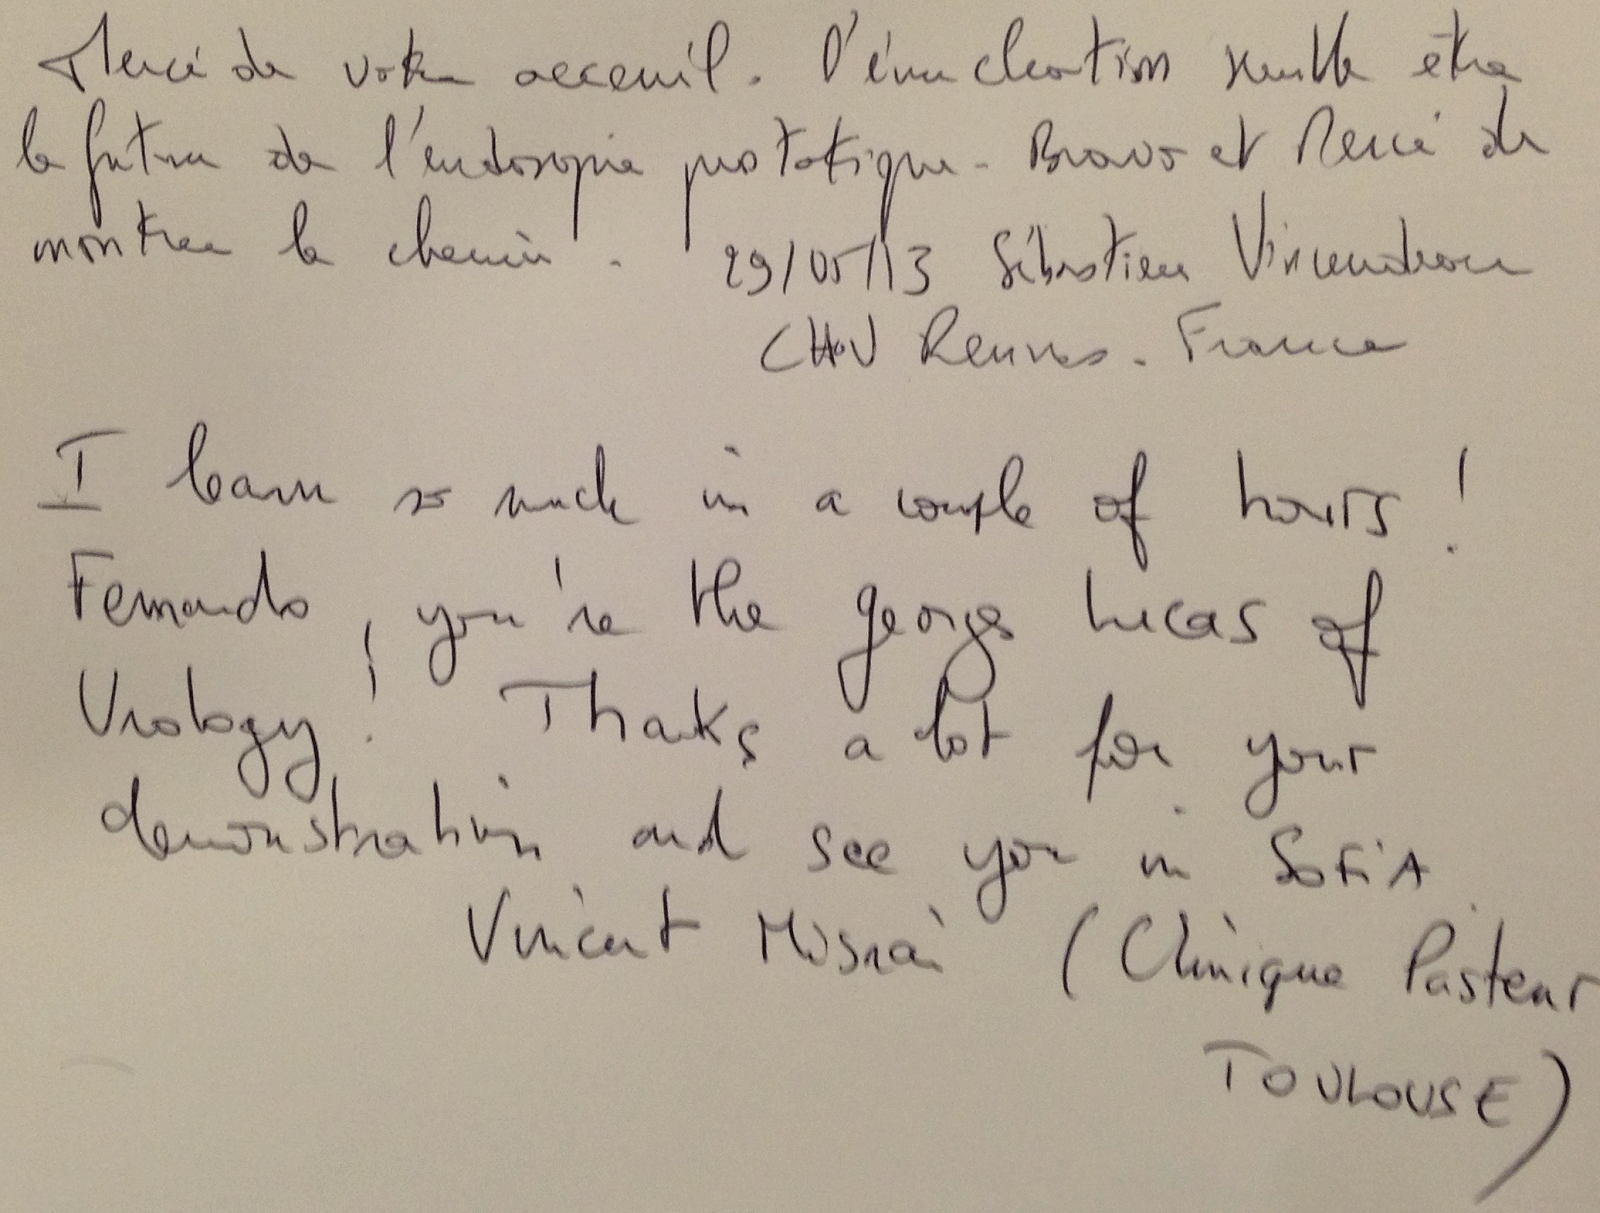 Merci de votre acceuil. L'énucléation semble être
le futur de l'endoscopie prostatique. Bravo et Merci de
montrer le chemin. 29/05/13 Sébastien Vincendeau
CHU Rennes. France
I learn so much in a couple of hours!
Fernando, you're the george Lucas of
Urology! Thanks a lot for your
demonstration and see you in SOFIA.
Vincent Misraï (Clinique Pasteur
TOULOUSE)